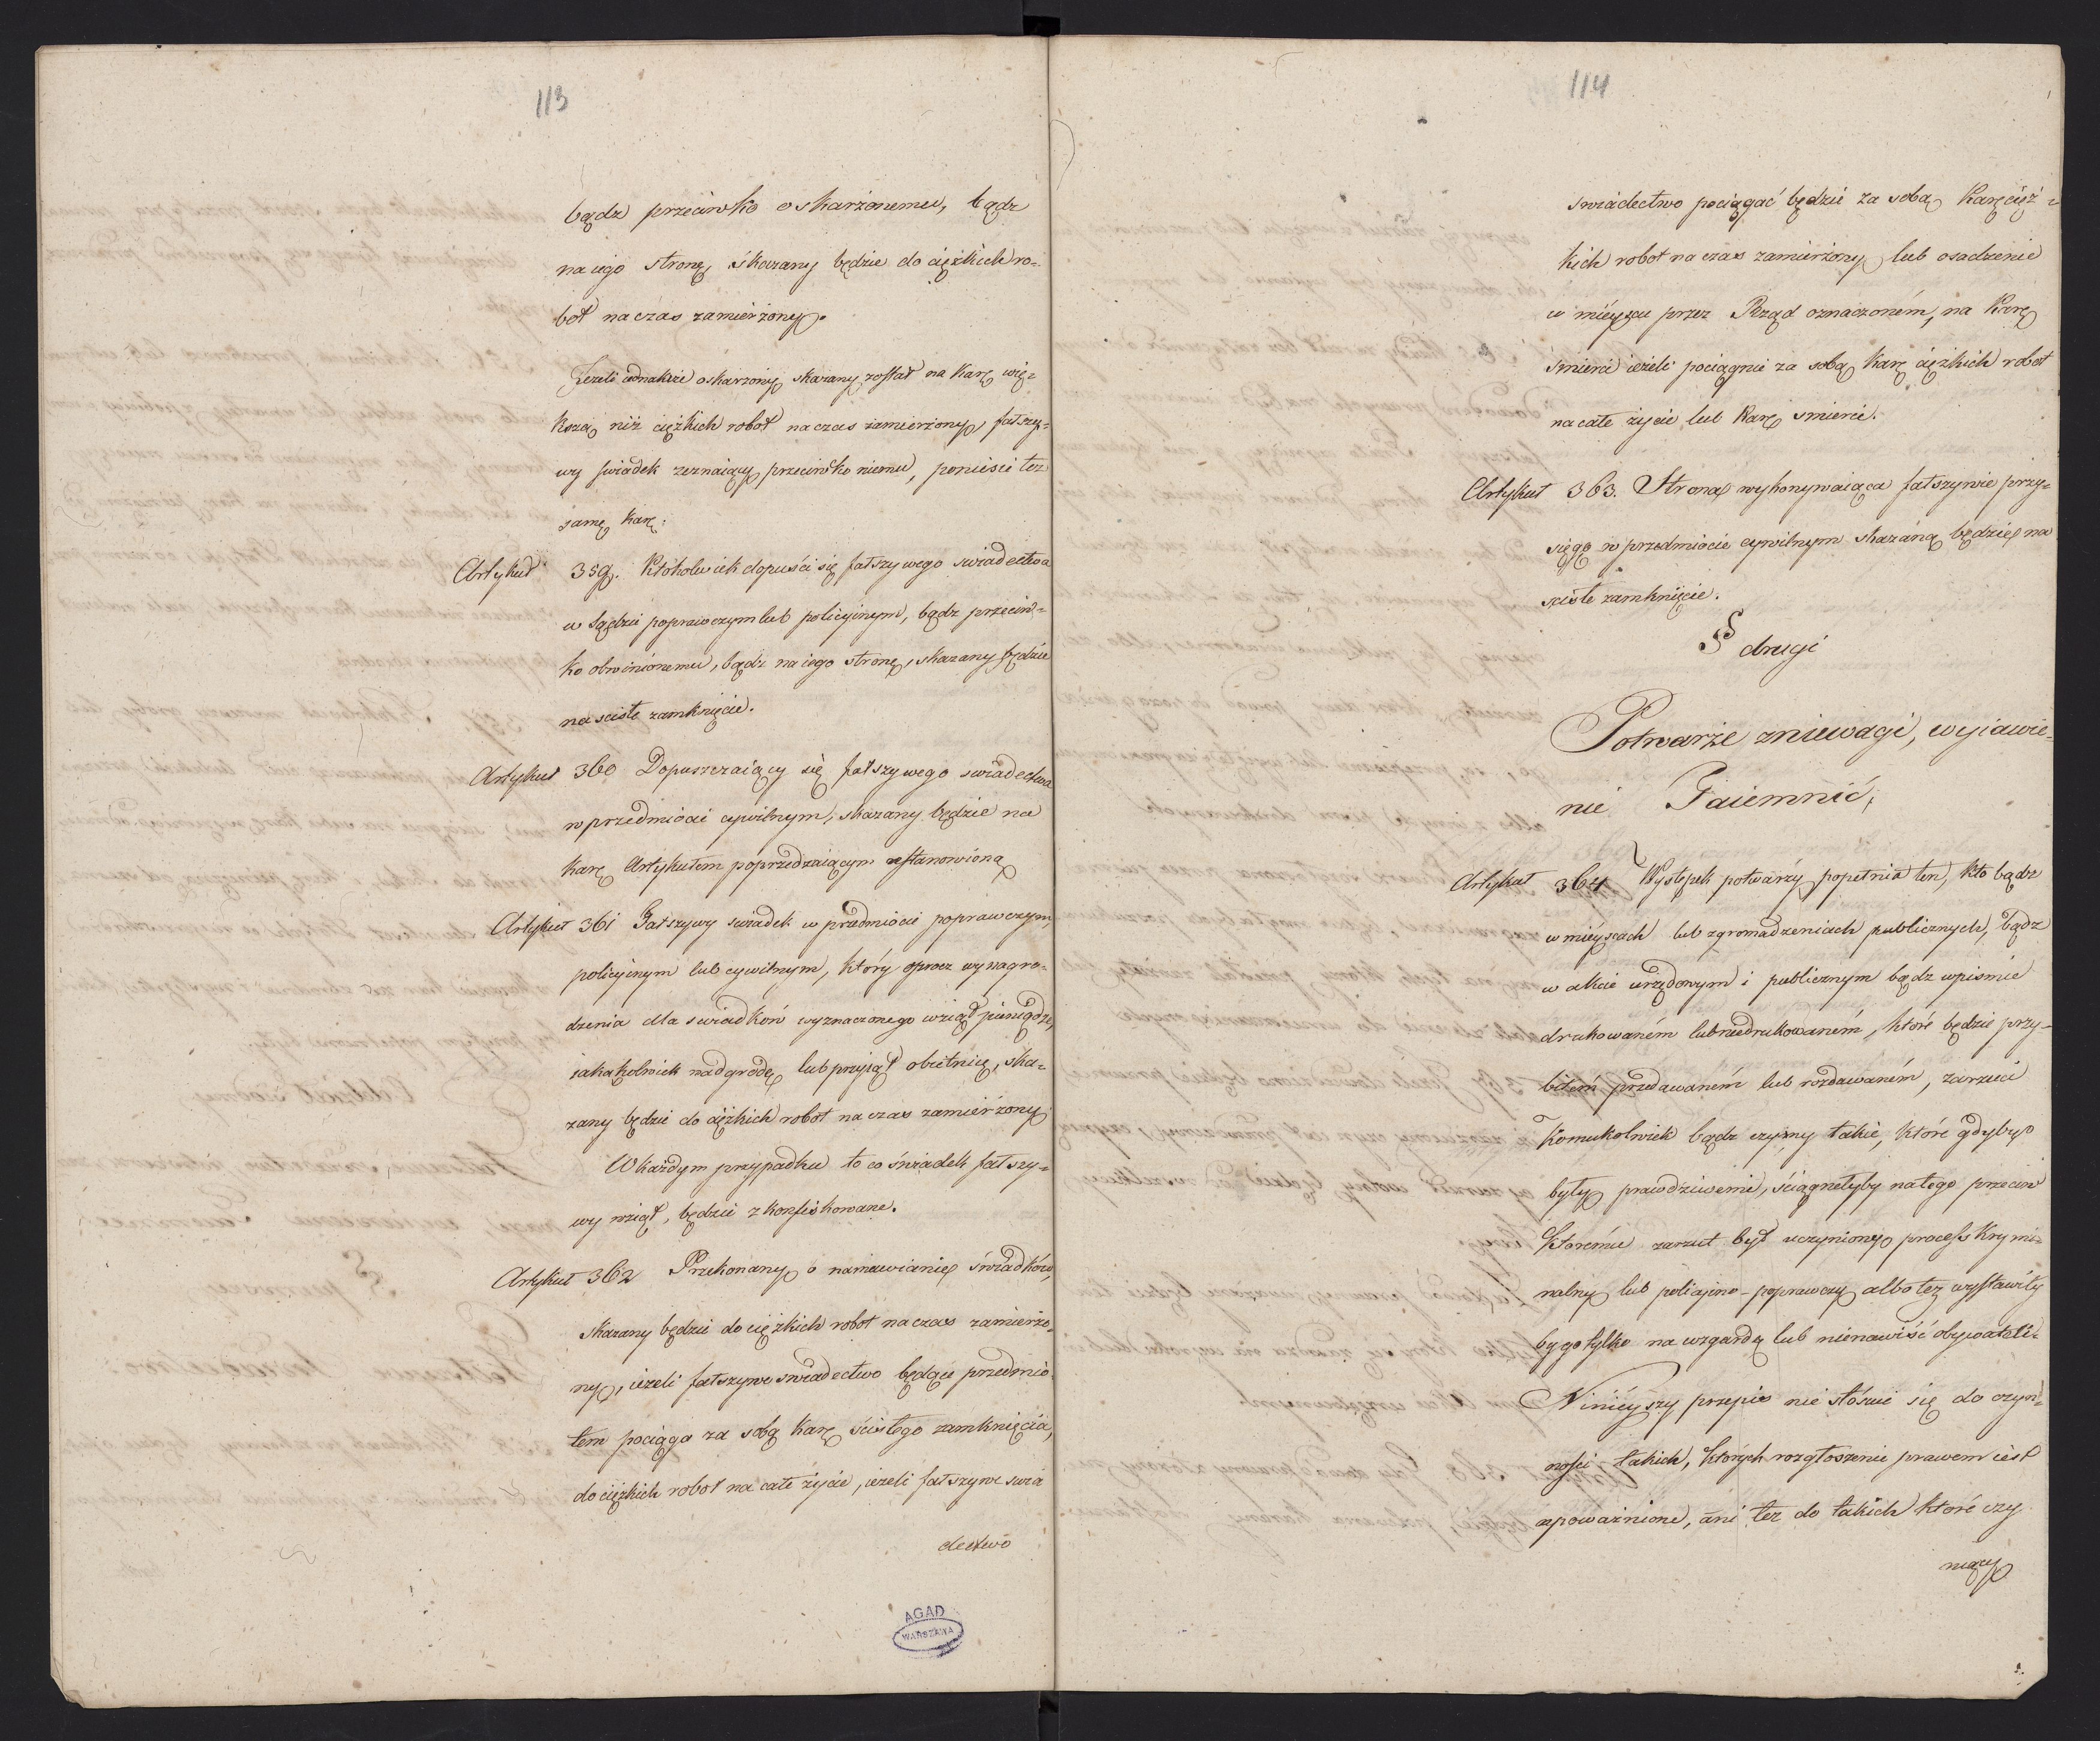 113
bądz przeciwko oskarżonemu, bądz
na iego stronę, skazany będzie do ciężkich ro=
bot na czas zamierzony.
Jezeli iednakże oskarzony skazany został na karę wię=
kszą niż ciężkich robot na czas zamierzony, fałszy=
wy swiadek zeznaiący przeciwko niemu, poniesie tez
samę karę.
Artykuł 359. Ktokolwiek dopuści się fałszywego swiadectwa
w Sądzie poprawczym lub policyinym, bądz przeciw=
ko obwinionemu, bądz na iego stronę, skazany będzie
na scisłe zamknięcie.
Artykuł 360 Dopuszczaiący się fałszywego swiadectwa
w przedmiocie cywilnym, skazany będzie na
karę Artykułem poprzedzaiącym ustanowioną
Artykuł 361 Fałszywy swiadek w przedmiocie poprawczym,
policyinym lub cywilnym, który oprocz wynagro=
dzenia dla swiadków wyznaczonego wziął pieniądze,
iakąkolwiek nadgrodę lub przyiął obietnicę, ska=
zany będzie do ciężkich robot na czas zamierzony
W każdym przypadku to co świadek fałszy=
wy wziął, będzie zkonfiskowane.
Artykuł 362 Przekonany o namawianie świadków,
skazany będzie do ciężkich robot na czas zamierzo=
ny, ieżeli fałszywe swiadectwo będące przedmio
tem pociąga za sobą karę ścisłego zamknięcia,
do ciężkich robot na całe życie, ieżeli fałszywe swia
dectwo
AGAD
WARSZAWA
114
swiadectwo pociągać będzie za sobą karę cięż=
kich robot na czas zamierzony lub osadzenie
w mieyscu przez Rząd oznaczoném, na karę
śmierci ieżeli pociągnie za sobą karę ciężkich robot
na całe życie lub karę smierci.
Artykuł 363. Strona wykonywaiąca fałszywie przy=
sięgę w przedmiocie cywilnym skazaną będzie na
scisłe zamknięcie.
§ drugi
Potwarze zniewagi, wyiawie=
nie Taiemnic,
Artykuł 364 Występek potwarzy popełnia ten, kto bądz
w mieyscach lub zgromadzeniach publicznych, bądz
w akcie urzędowym i publicznym bądz w pismie
drukowaném lub niedrukowaném, które będzie przy=
bitém przedawaném lub rozdawaném, zarzuci
komukolwiek bądz czyny takie, które gdyby
były prawdziwemi, ściągnełyby na tego przeciw
któremu zarzut był uczyniony process krymi=
nalny lub policyino-poprawczy albo tez wystawiły
by go tylko na wzgardę lub nienawiść obywateli=
Ninieyszy przepis nie stósuie się do czyn=
ności takich, których rozgłoszenie prawem iest
upoważnione, ani tez do takich które czy
niący